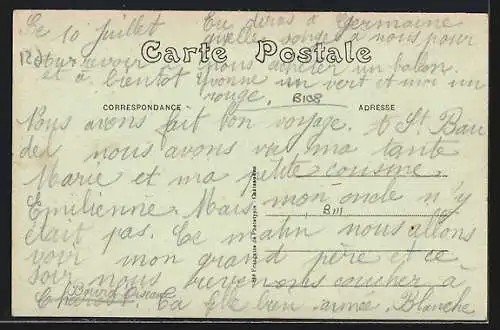 Le 10 Juillet Tu diras à Germaine
quelles songe à nous pour
Carte Postale
Au revoir à nous acheter un balon
et à bientot Yvonne un vert et moi un
rouge. B108
CORRESPONDANCE ADRESSE
Nous avons fait bon voyage. A St Bau
del nous avons vu ma tante
Marie et ma petite cousine
Emilienne. Mais mon oncle n'y
B111
était pas. Ce matin nous allons
voir mon grand père et ce
soir nous revenons coucher à
Ta fille bien aimée. Blanche